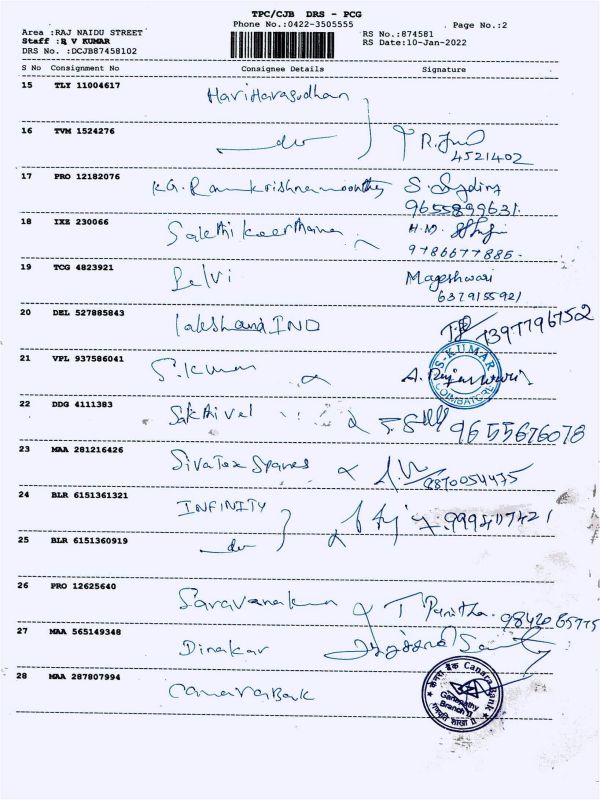 TPC/CJB DRS - PCG
Phone No.:0422-3505555
Page No.:2
Area :RAJ NAIDU STREET
RS No.:874581
Staff :R V KUMAR
RS Date:10-Jan-2022
DRS No. :DCJB87458102
S No Consignment No Consignee Details Signature
15 TLY 11004617 Hariharasudhan
16 TVM 1524276
4521402
17 PRO 12182076 K.G. Ramkrishnamoorthy S.
9655899631.
18 IXE 230066 Sakthi Keerthana
9786677885.
19 TCG 4823921 Selvi Mageshwari
6379155921
20 DEL 527885843 IND 7397796752
21 VPL 937586041 S.kumar A. Rajeshwari
S-KUMAR
COIMBATORE
22 DDG 4111383 Sakthivel 9655676078
23 MAA 281216426 SivaTex Spares
9870054475
24 BLR 6151361321 INFINITY 999407421
25 BLR 6151360919
26 PRO 12625640 Saravanakumar T Punitha. 9842065775
27 MAA 565149348 Dinakar
28 MAA 287807994 Canara Bank
केनरा बैंक Canara Bank
Ganapathy
Branch II
गणपति शाखा II